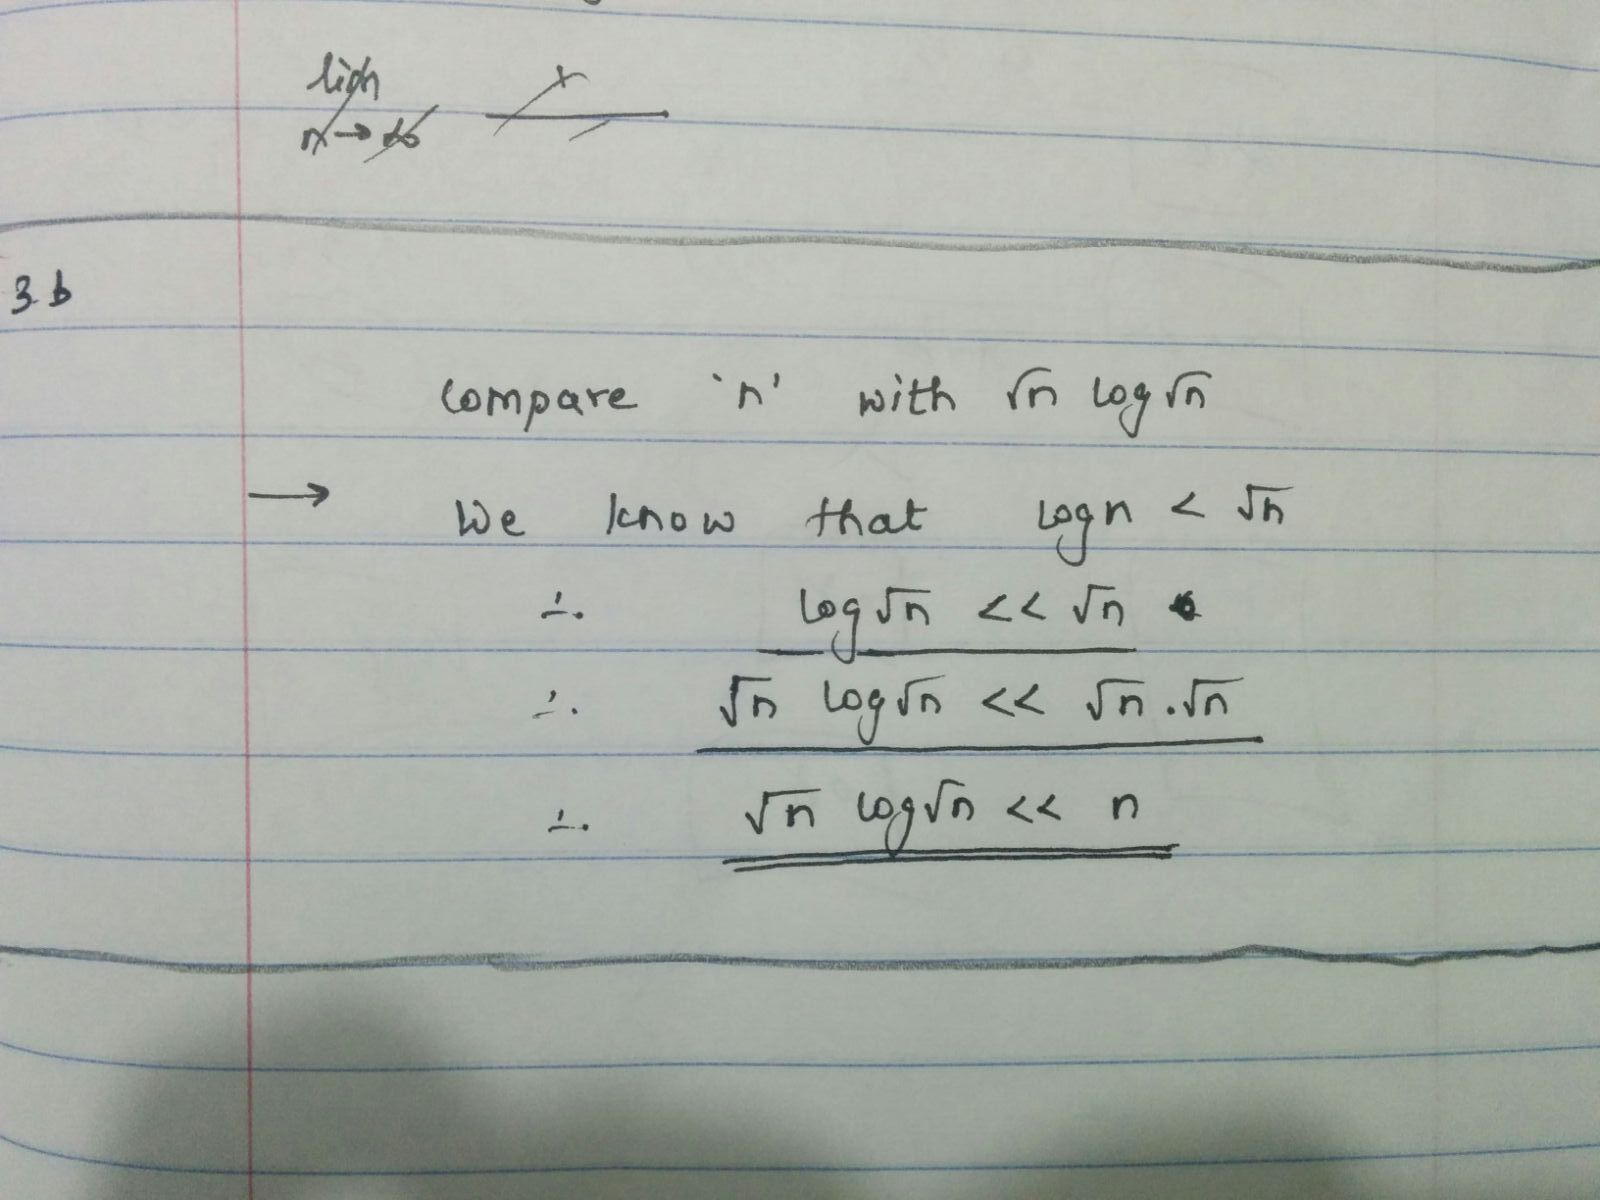 lim
n→∞
3.b
compare 'n' with √n log√n
→ We know that logn < √n
∴ log√n << √n
∴ √n log√n << √n.√n
∴ √n log√n << n